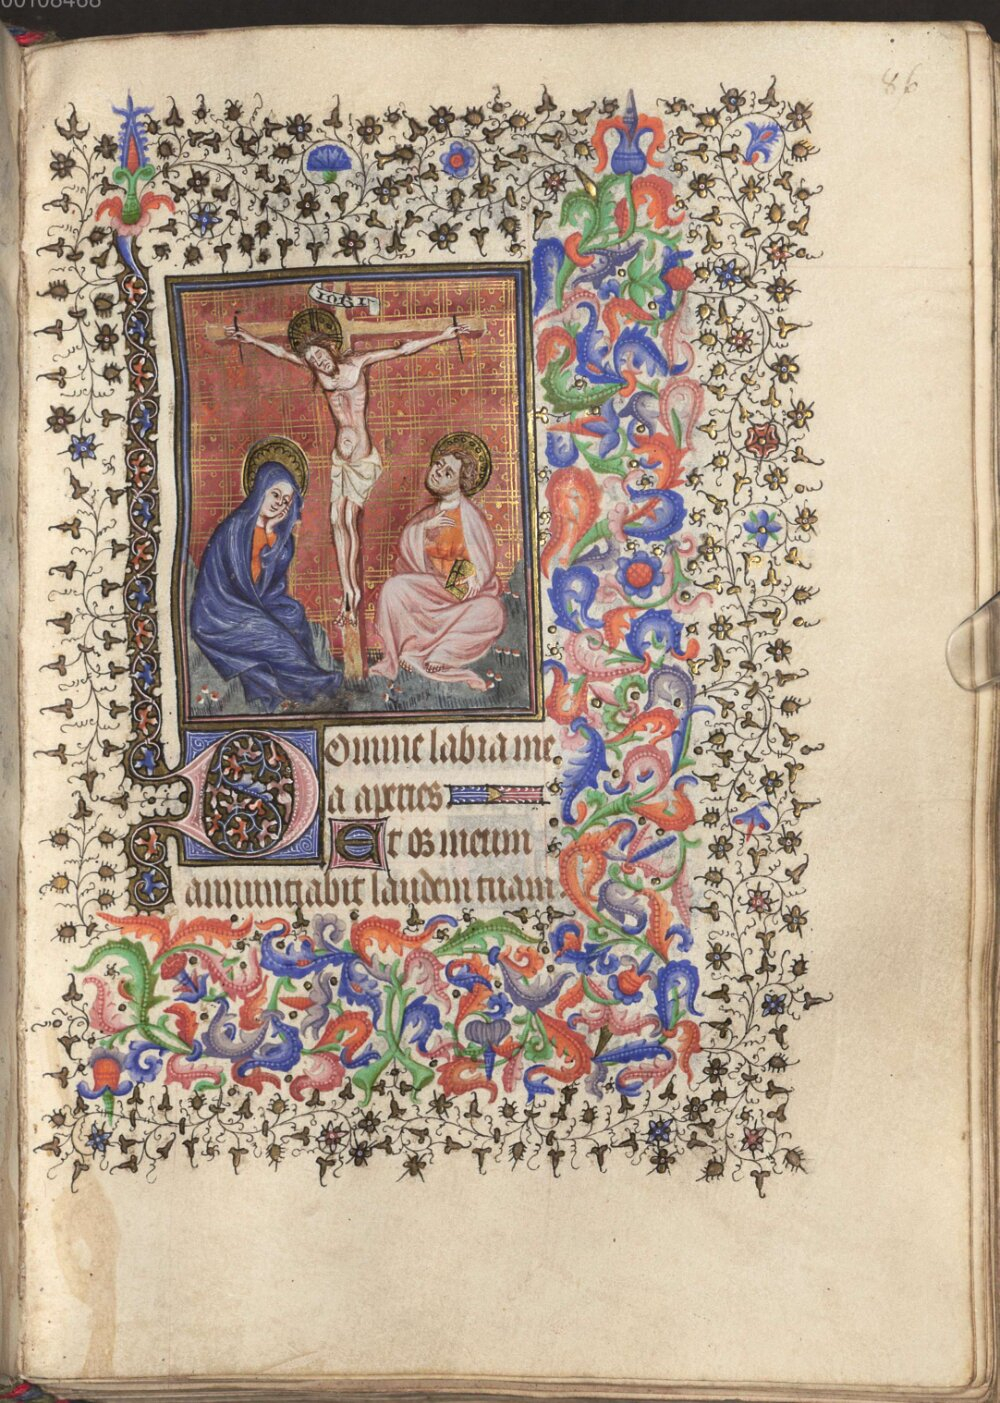 00108468
86
INRI
Domine labia me
a aperies
Et os meum
annunciabit laudem tuam